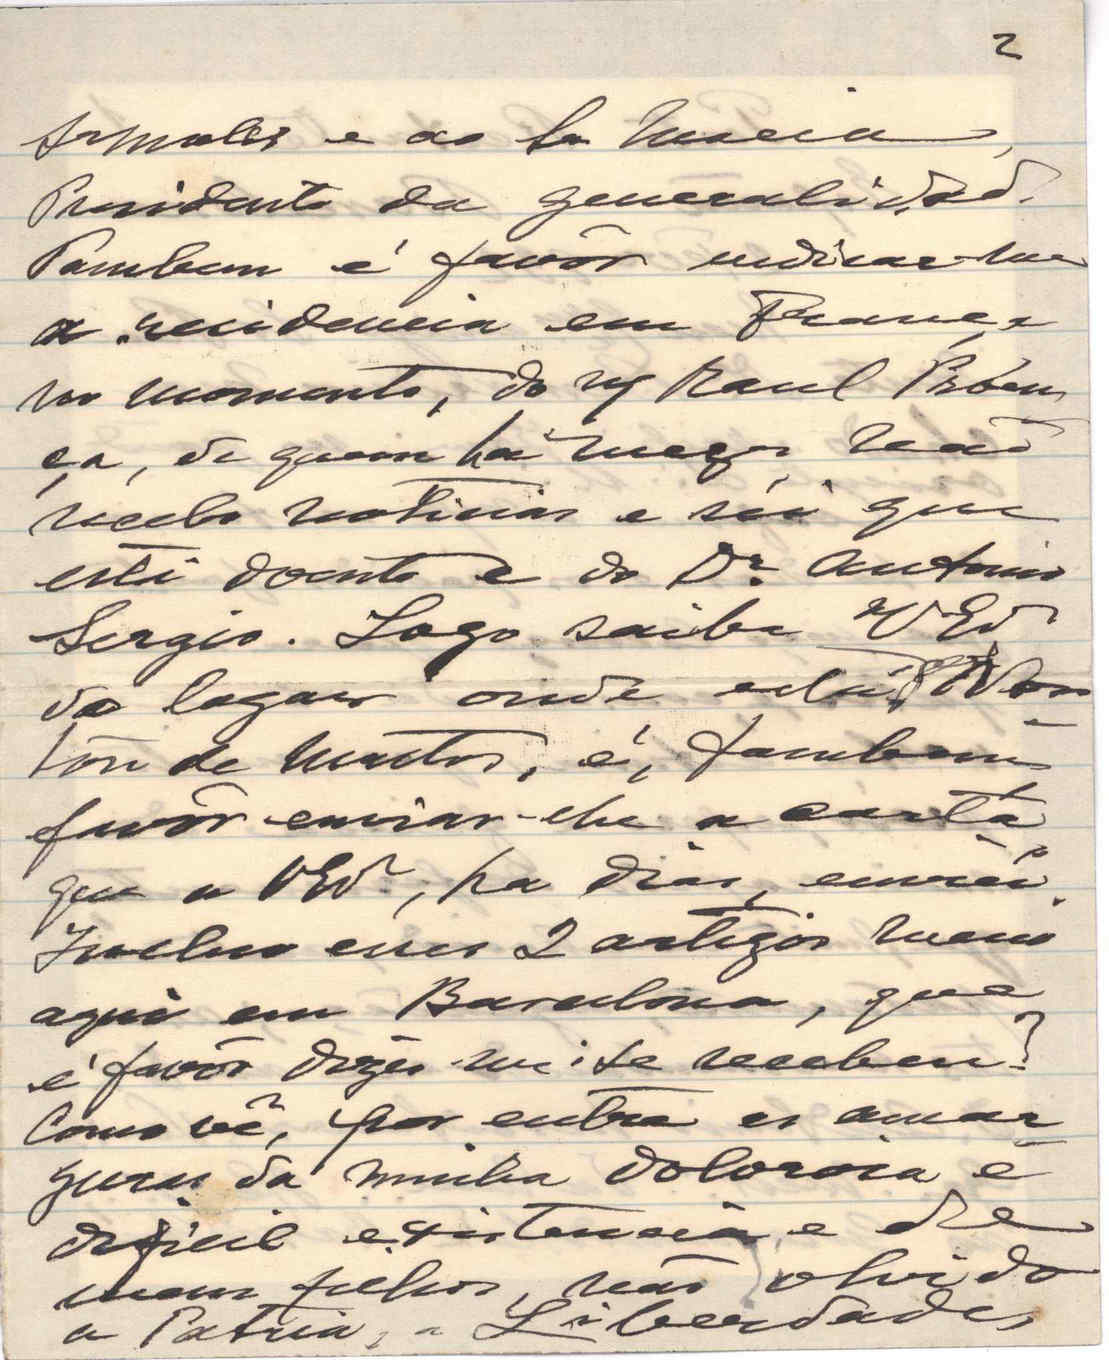 2
e ao Sr Macia,
Presidente da generalidad.
Tambem é favôr indicar-me
a residencia em França
no momento, do Raul Próen
ça, de quem há mezes não
recebo noticias e sei que
está doente e do Dr. Antonio
Sergio. Logo saiba V Exª
do logar onde está
de Mattos, é, tambem,
favôr enviar-lhe a carta
que a V Exª, ha dias, enviei.
Incluo eses 2 artigos meus
aqui em Barcelona, que
é favôr dizer-me se recebeu?
Como vê, por entre as amar
guras da minha dolorosa e
dificil existencia e de
meus filhos, não olvido
a Patria, a Liberdade,